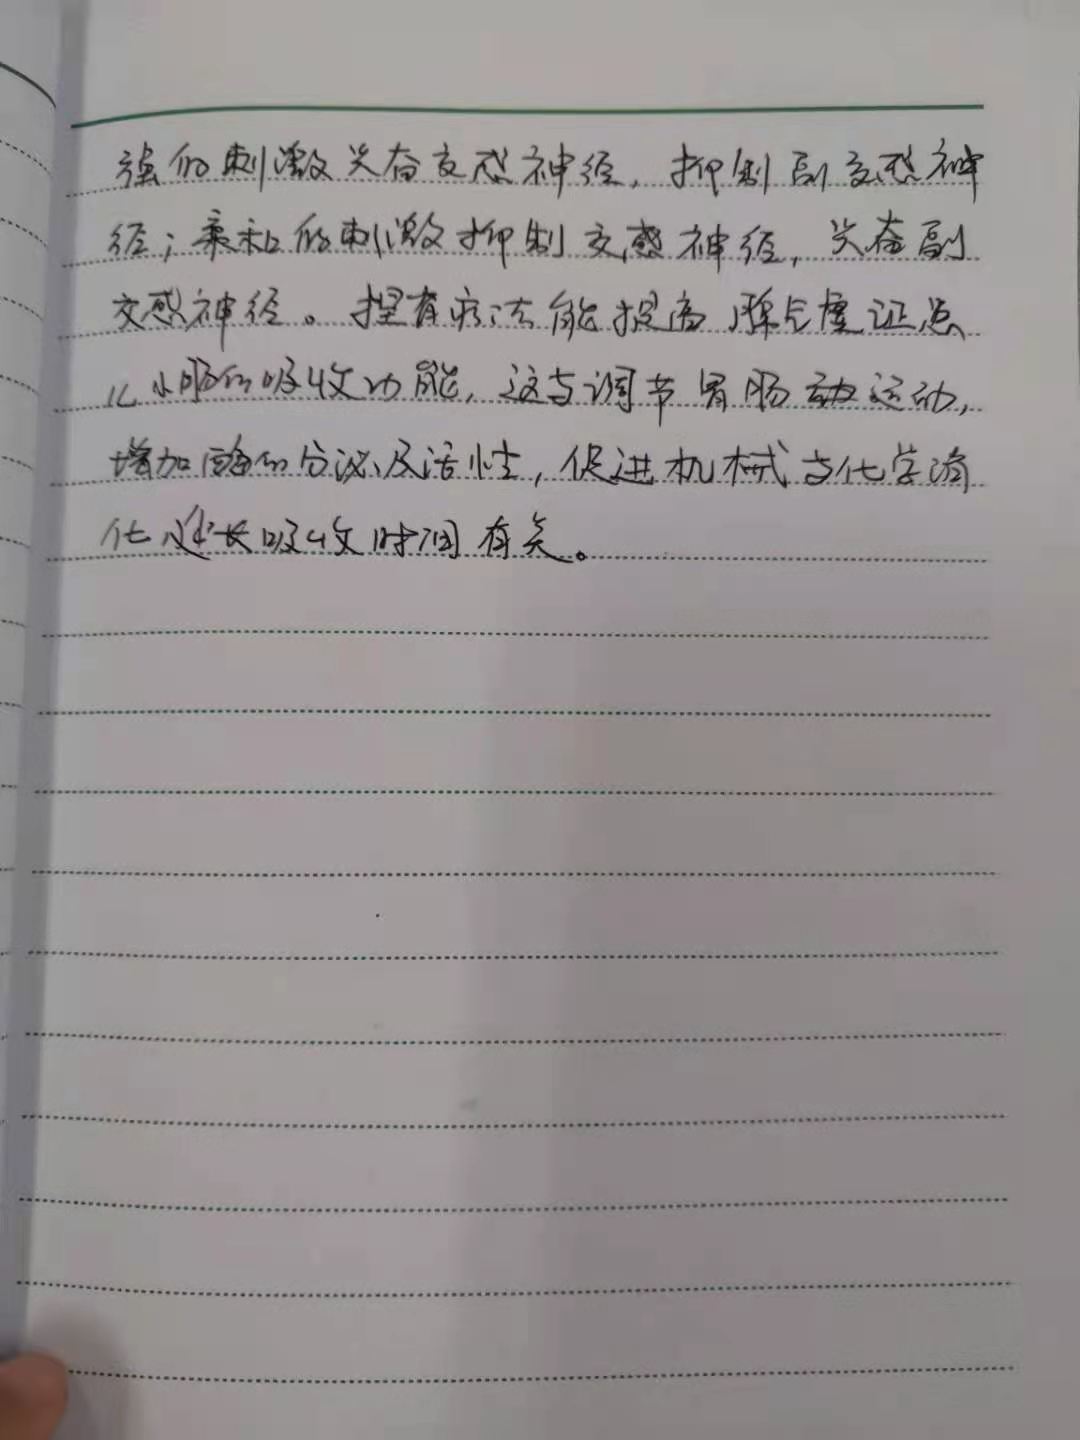 强的刺激兴奋交感神经，抑制副交感神
经；柔和的刺激抑制交感神经，兴奋副
交感神经。捏脊疗法能提高脾气虚证患
儿小肠的吸收功能，这与调节胃肠动运动，
增加酶的分泌及活性，促进机械与化学消
化延长吸收时间有关。